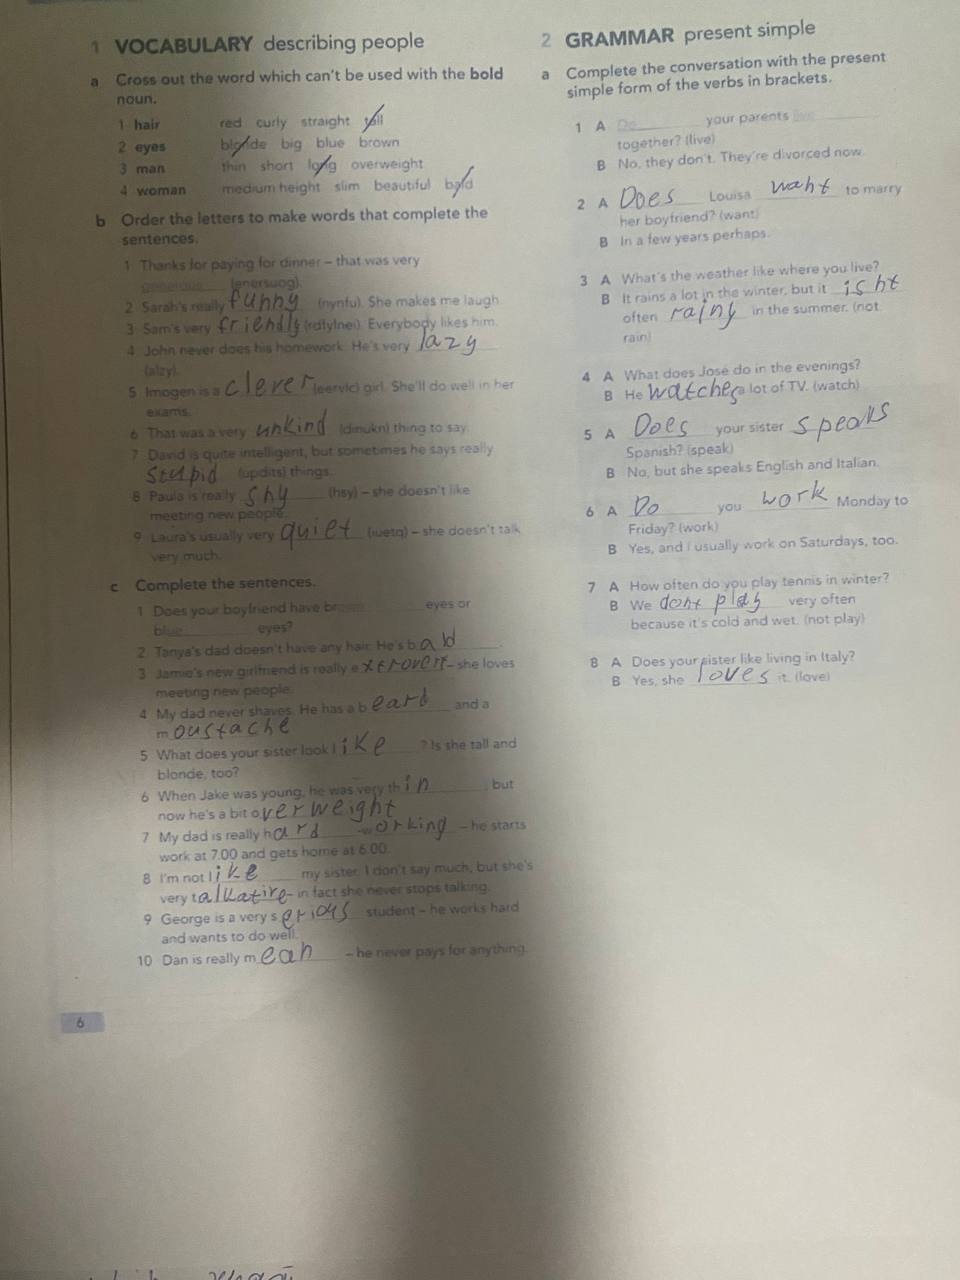 1 VOCABULARY describing people
a Cross out the word which can't be used with the bold
noun.
1 hair red curly straight tall
2 eyes blonde big blue brown
3 man thin short long overweight
4 woman medium height slim beautiful bald
b Order the letters to make words that complete the
sentences.
1 Thanks for paying for dinner – that was very
generous (enersuog).
2 Sarah's really funny (nynfu). She makes me laugh.
3 Sam's very friendly (rdfylnei). Everybody likes him.
4 John never does his homework. He's very lazy
(alzy).
5 Imogen is a clever (eervlc) girl. She'll do well in her
exams.
6 That was a very unkind (dinukn) thing to say.
7 David is quite intelligent, but sometimes he says really
stupid (updits) things.
8 Paula is really shy (hsy) – she doesn't like
meeting new people.
9 Laura's usually very quiet (iuetq) – she doesn't talk
very much.
c Complete the sentences.
1 Does your boyfriend have brown eyes or
blue eyes?
2 Tanya's dad doesn't have any hair. He's bald.
3 Jamie's new girlfriend is really extrovert – she loves
meeting new people.
4 My dad never shaves. He has a beard and a
moustache
5 What does your sister look like ? Is she tall and
blonde, too?
6 When Jake was young, he was very thin, but
now he's a bit overweight
7 My dad is really hard -working – he starts
work at 7.00 and gets home at 6.00.
8 I'm not like my sister. I don't say much, but she's
very talkative – in fact she never stops talking.
9 George is a very serious student – he works hard
and wants to do well.
10 Dan is really mean – he never pays for anything.
6
2 GRAMMAR present simple
a Complete the conversation with the present
simple form of the verbs in brackets.
1 A Do your parents live
together? (live)
B No, they don't. They're divorced now.
2 A Does Louisa want to marry
her boyfriend? (want)
B In a few years perhaps.
3 A What's the weather like where you live?
B It rains a lot in the winter, but it isnt
often rainy in the summer. (not
rain)
4 A What does Jose do in the evenings?
B He watches a lot of TV. (watch)
5 A Does your sister speaks
Spanish? (speak)
B No, but she speaks English and Italian.
6 A Do you work Monday to
Friday? (work)
B Yes, and I usually work on Saturdays, too.
7 A How often do you play tennis in winter?
B We dont play very often
because it's cold and wet. (not play)
8 A Does your sister like living in Italy?
B Yes, she loves it. (love)